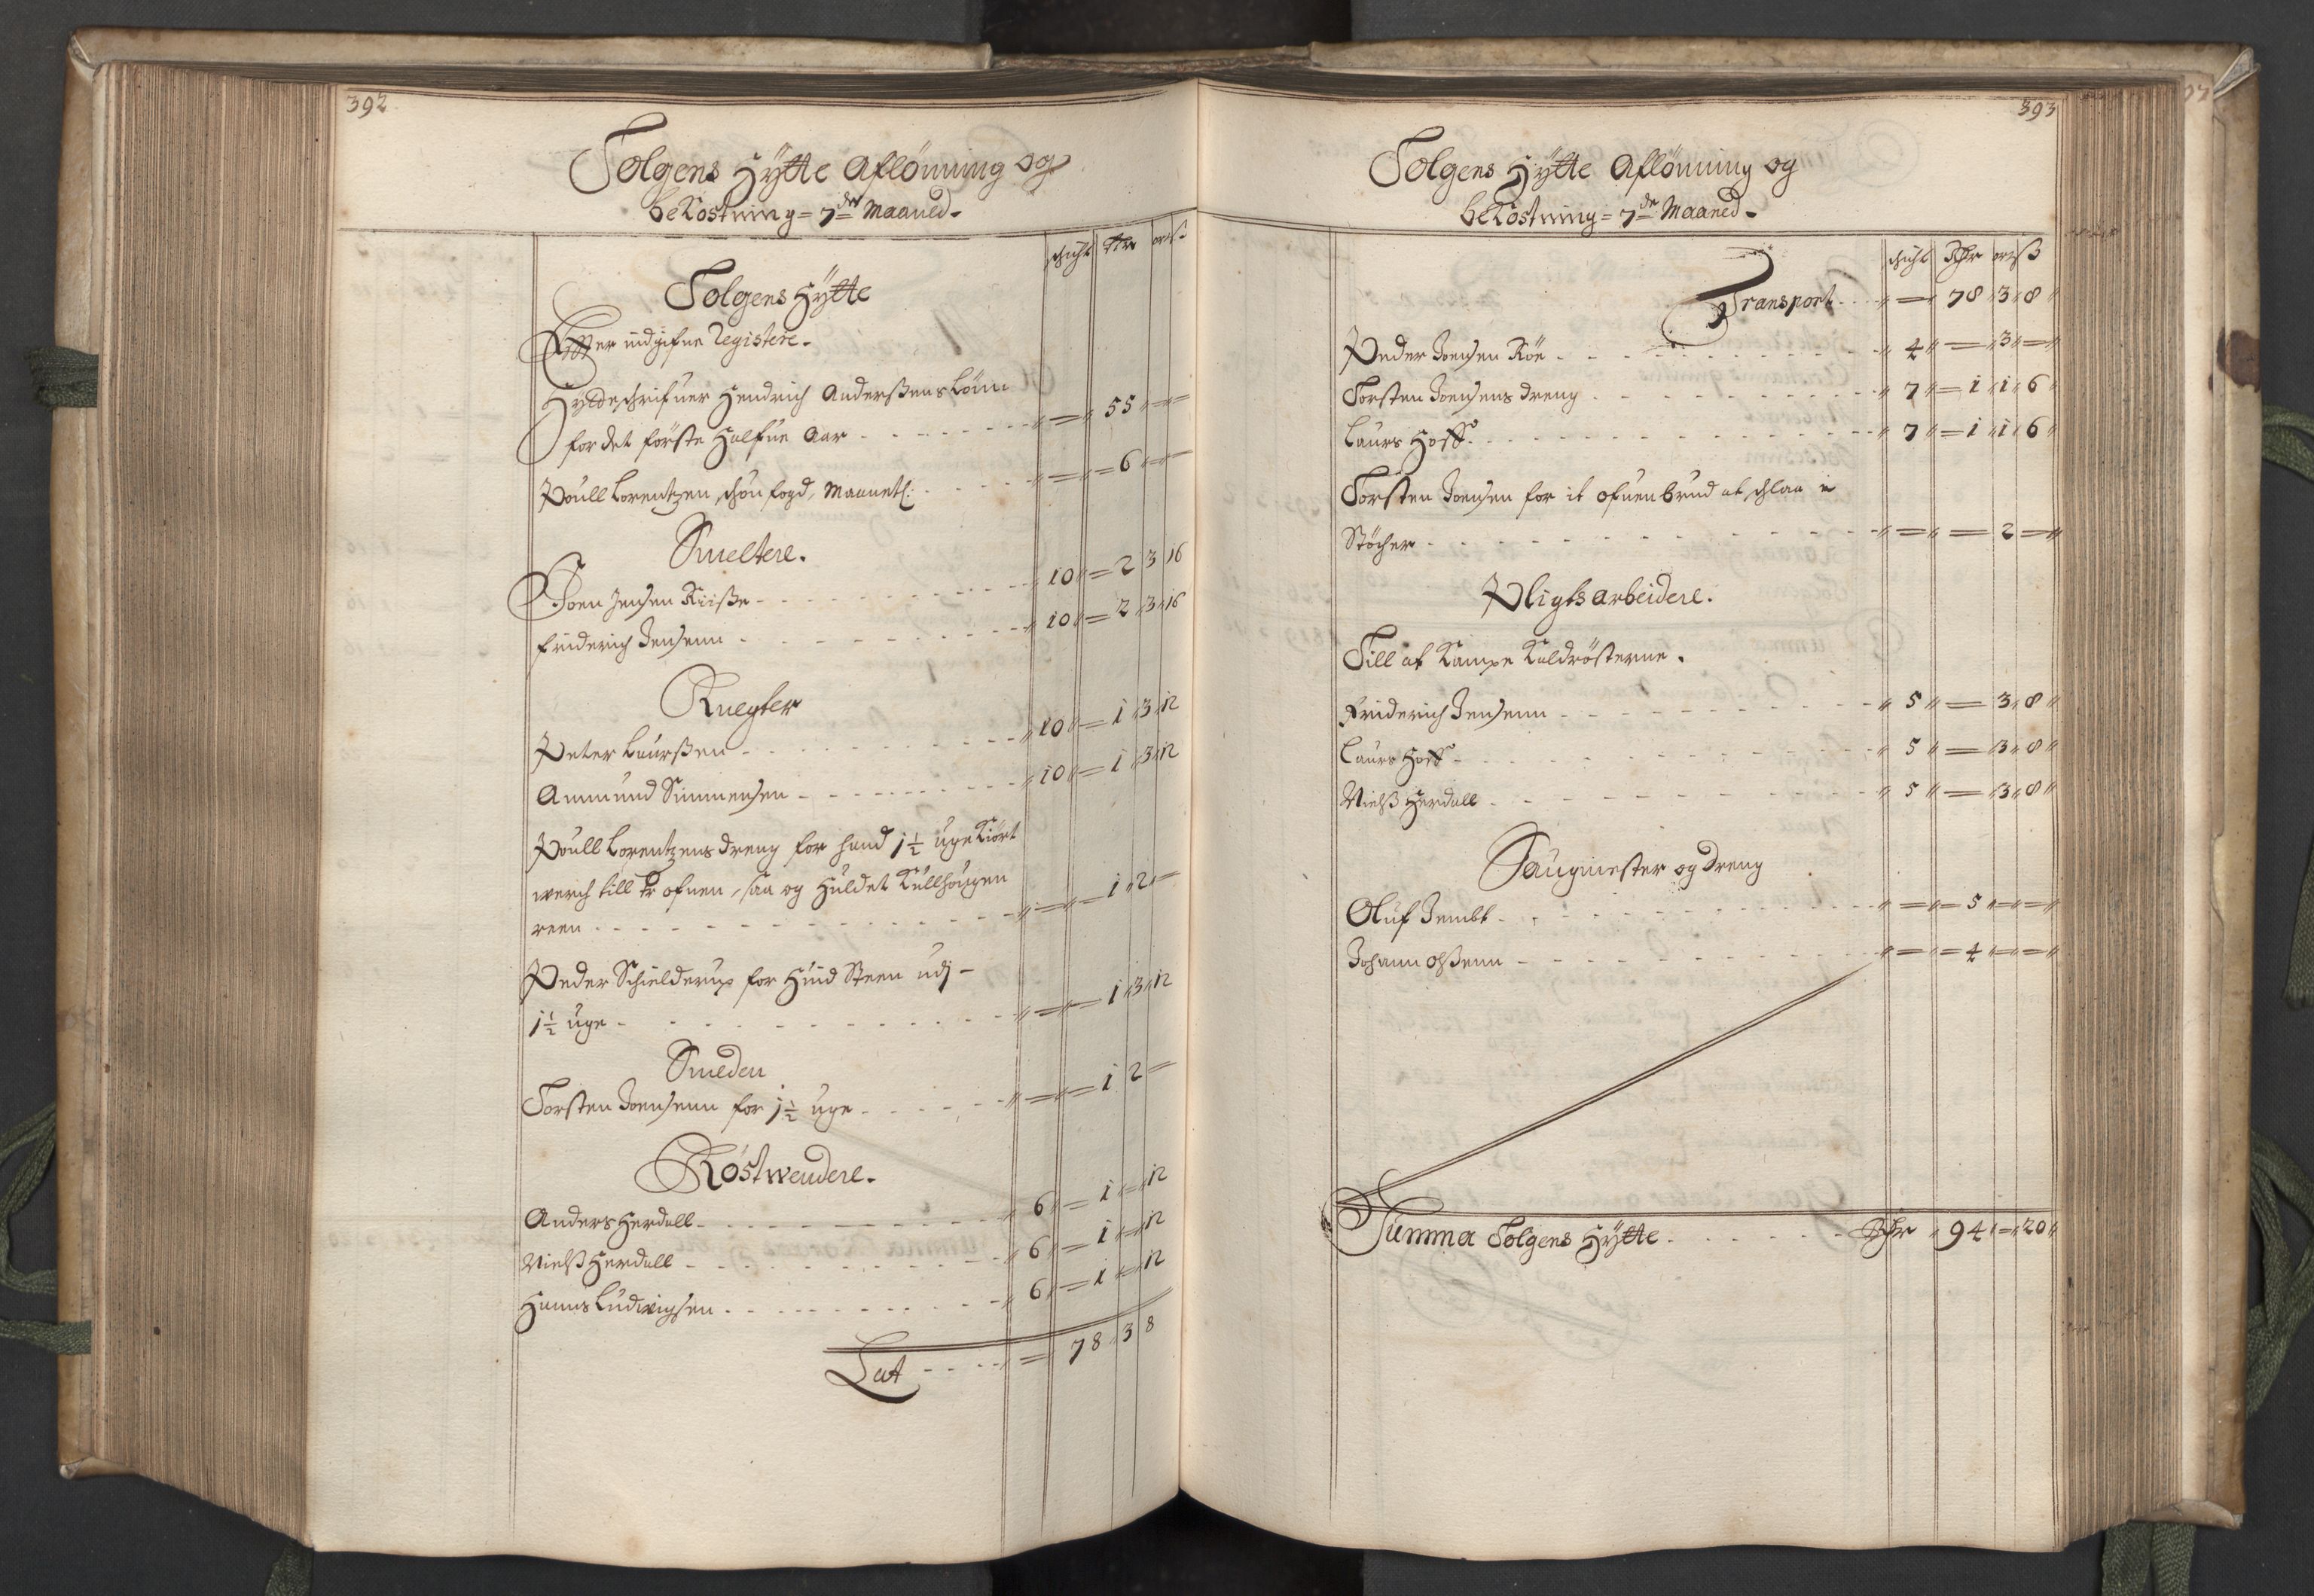 392
Tolgens Hÿtte Aflönning og
bekostning = 7de Maaned.
schicht Rdr ort ß
Tolgens Hÿtte
Effter indgifne Registere.
Hytteschrifuer Hendrich Anderßens Lönn
for det förste Halfue Aar - - - - - - - " = " = 55 " = " =
Poull Lorentzen schöufogd, Maanetl: - - - " = " = 6 " = " =
Smeltere.
Joen Jensen Riise - - - - - - - - - " 10 " = 2 3 16
Friderich Jensenn - - - - - - - - - " 10 " = 2 " 3 " 16
Knegter
Peter Laurßen - - - - - - - - - " 10 " = 1 " 3 " 12
Ammund Simmensen - - - - - - - - " 10 " = 1 " 3 " 12
Poull Lorentzens dreng for hand 1½ uge Kiört
werch till ofnen, saa og Huldet Kullhougen
reen - - - - - - - - - - - - " = " = 1 " 2 " =
Peder Schielderup for Hand Steen udj -
1½ uge - - - - - - - - - - - " = " = 1 " 3 " 12
Smeden
Torsten Joensenn for 1½ uge - - - - - - " = " = 1 2 =
Röstwendere.
Anders Herdall - - - - - - - - - " 6 " = 1 " = " 12
Nielß Herdall - - - - - - - - - " 6 " = 1 " = " 12
Hanns Ludwigsen - - - - - - - - - " 6 " = 1 " = " 12
Lat - - - - = 78 " 3 8
393
Tolgens Hÿtte Aflönning og
bekostning = 7de Maaned.
schicht Rdr ort ß
Transport - - " = " 78 " 3 " 8 "
Peder Joensen Röe - - - - - - - - - " 4 " = " 3 " = "
Torsten Joensens dreng - - - - - - - - " 7 " = 1 " 1 " 6 "
Laurs Hoff - - - - - - - - - - - " 7 " = 1 " 1 " 6 "
Torsten Joensen for it ofuenbrud at schlaa i
Stöcher - - - - - - - - - - - " = " = 2 = "
Pligtsarbeidere.
Till at Kampe Kaldrösterne.
Friderich Jensenn - - - - - - - - - " 5 " = 3 " 8 "
Laurs Hoff - - - - - - - - - - " 5 " = " 3 " 8 "
Nielß Herdall - - - - - - - - - " 5 " = " 3 " 8 "
Saugmester og Dreng
Oluf Jembt - - - - - - - - - - " = " = 5 " = " = "
Johann Olßenn - - - - - - - - - " = " = 4 " = " = "
Summa Tolgens Hÿtte - - - - - - Rdr " 94 " = " 20 "